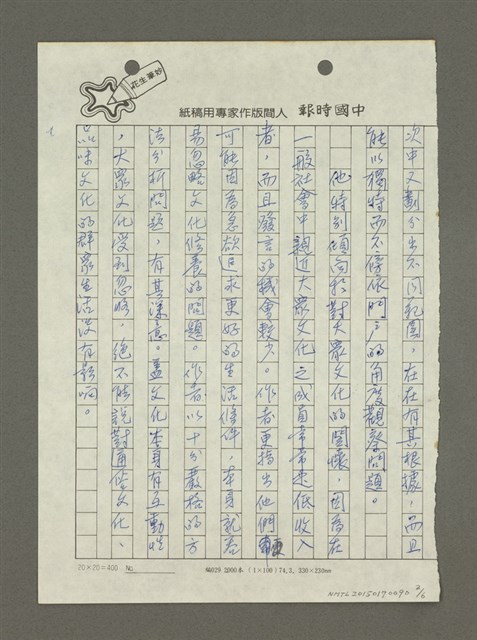 妙筆生花
中國時報 人間版作家專用稿紙
次中又劃分出不同範圍，在在有其根據，而且
能以獨特而不傍依門戶的角度觀察問題。
他特別傾向於對大眾文化的關懷，因為在
一般社會中親近大眾文化之成員常常是低收入
者，而且發言的機會較少。作者更指出他們
可能因為急欲追求更好的生活條件，本身就容
易忽略文化修養的問題。作者以十分嚴格的方
法分析問題，有其深意。蓋文化本身有互動性
，大眾文化受到忽略，絕不能說對通俗文化、
品味文化的群眾生活沒有影响。
20×20=400 No.
稿029 2000本 (1×100) 74.3. 330×230mm
NMTL20150170090 2/6